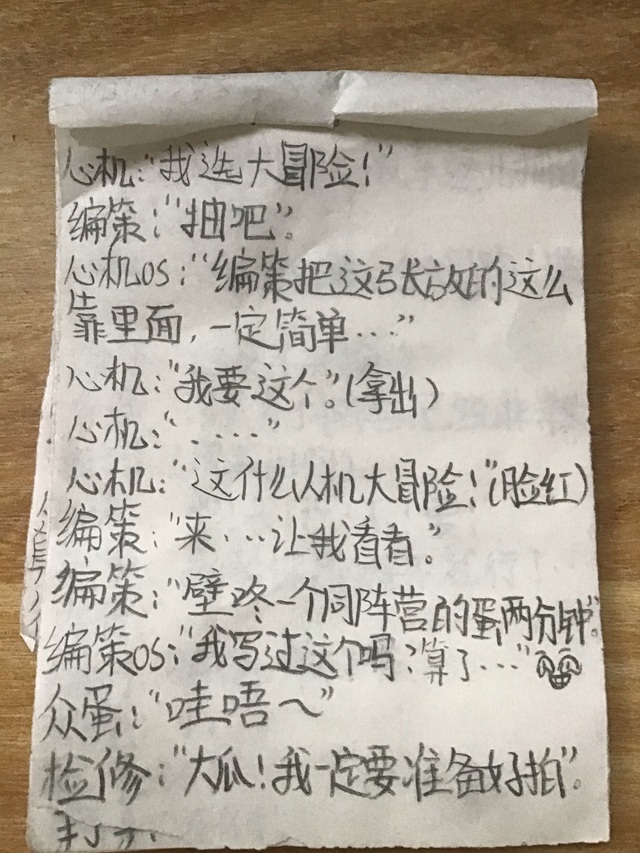 心机：“我选大冒险！”
编策：“抽吧”。
心机OS：“编策把这张放的这么
靠里面，一定简单...”
心机：“我要这个。”（拿出）
心机：“....”
心机：“这什么人机大冒险！”（脸红）
编策：“来...让我看看。”
编策：“壁咚一个同阵营的蛋两分钟”。
编策OS：“我写过这个吗？算了...”
众蛋：“哇唔～”
检修：“大瓜！我一定要准备好拍”。